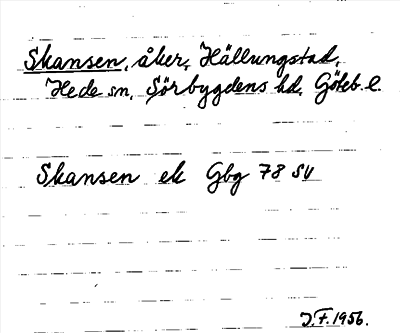 Skansen, åker, Hällungstad,
Hede sn, Sörbygdens hd, Göteb. l.
Skansen ek Gbg 78 SV
J.F. 1956.